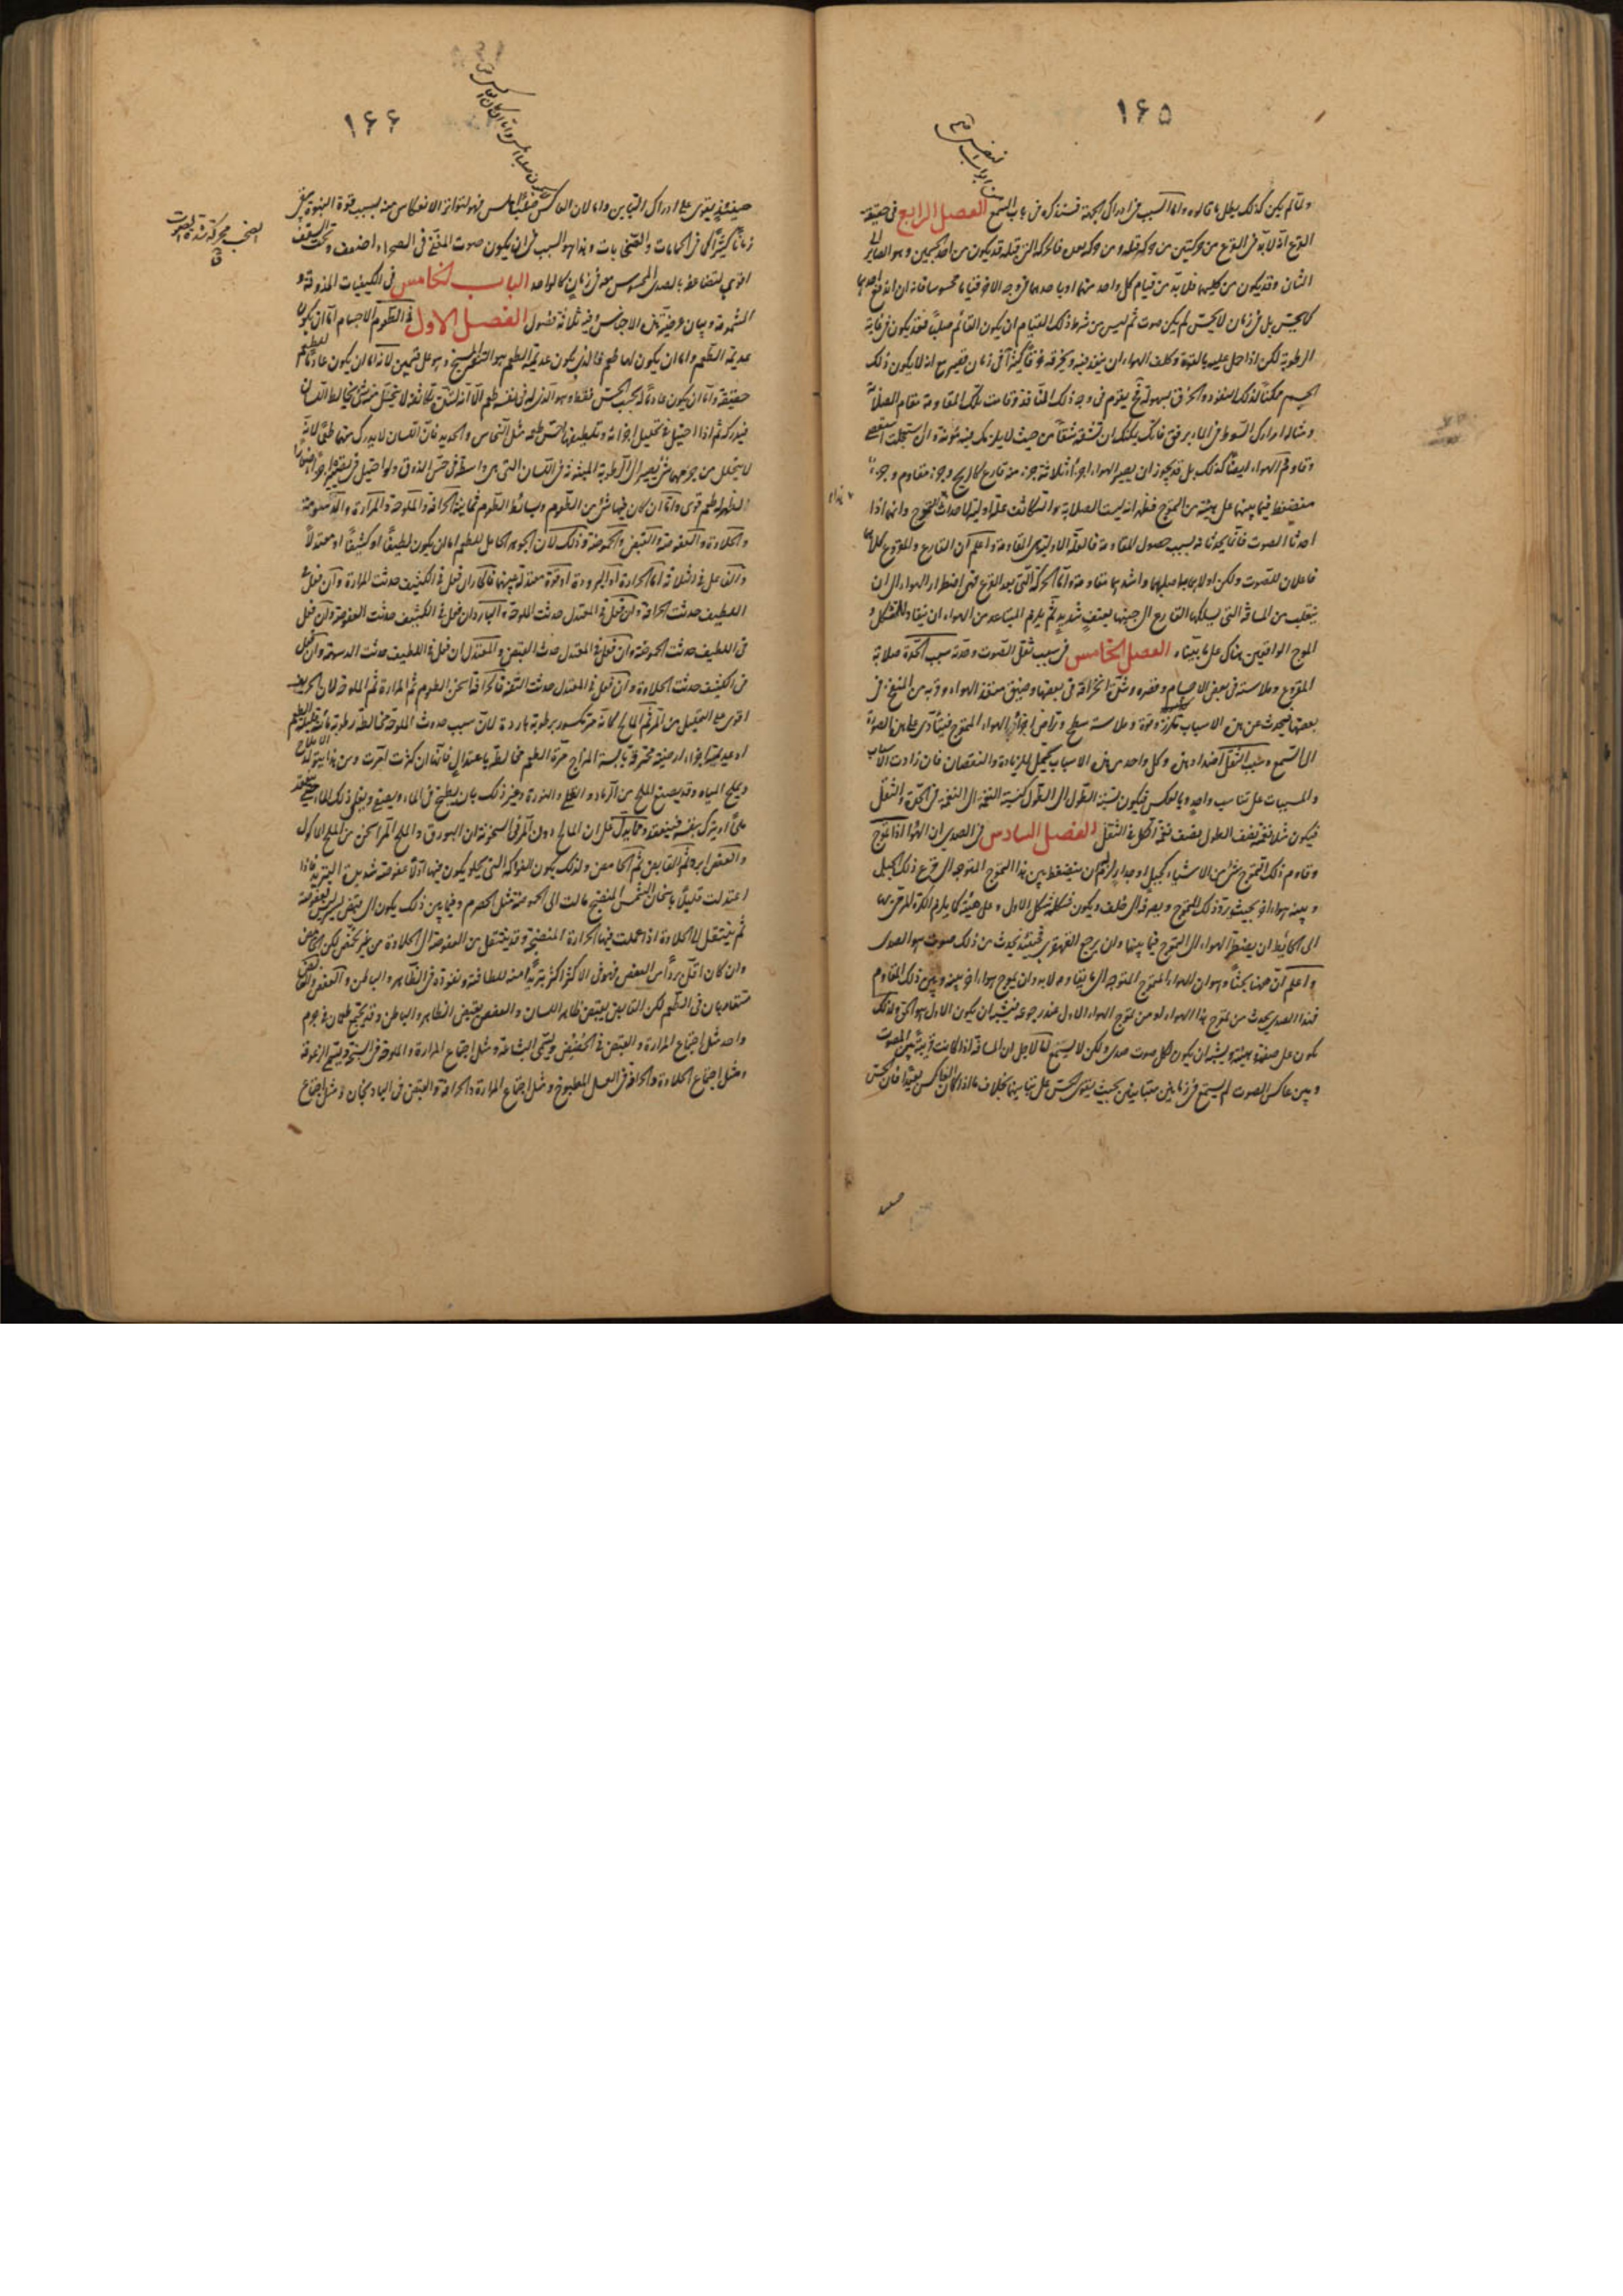 ١٦٥
ولما لم يكن كذلك بطل ما قالوه واما السبب في ادراك الجهة فسنذكره في باب السمع الفصل الرابع في حقيقة
القرع انه لابد في القرع من حركتين من حركة قبله ومن حركة بعده فالحركة التي قبله قد يكون من احد الجسمين وهو الصائر الى
الثاني وقد يكون من كليهما فلابد من قيام كل واحد منهما او باحدهما في وجه الاخر قياما محسوسا فانه ان اندفع احدهما
كما يحس بل في زمان لا يحس لم يكن صوت ثم ليس من شرط ذلك القيام ان يكون القائم صلبا فقد يكون في غاية
الرطوبة لكن اذا حمل عليه بالقوة وكلف الهواء ان ينفذ فيه ويخرقه خرقا كثيرا في زمان قصير مع انه لا يكون ذلك
الجسم ممكنا لذلك النفوذ والخرق بسهولة فحينئذ يقوم في وجه ذلك النافذ وقامت تلك المقاومة مقام الصلابة
ومثاله امرارك السوط في الماء برفق فانك يمكنك ان تشقه شقا من حيث لا يلزمك فيه مؤنة وان استعجلت استعصى
وقاوم الهواء ايضا كذلك بل قد يجوز ان يصير الهواء اجزاء ثلاثة جزء منه قارع كالريح وجزء مقاوم وجزء
منضغط فيما بينهما على هيئة من التموج فظهر انه ليست الصلابة والتكاثف علة اولية لاحداث التموج وانهما اذا
احدثا الصوت فانما يحدثانه بسبب حصول المقاومة فالعلة الاولية هي المقاومة واعلم ان القارع والمقروع كلاهما
فاعلان للصوت ولكن اولاهما به اصلبهما واشدهما مقاومة واما الحركة التي بعد القرع فهي اضطرار الهواء الى ان
ينقلب من المسافة التي يسلكها القارع الى جنبيها بعنف شديد ثم يلزم المتباعد من الهواء ان ينقاد للشكل و
الموج الواقعين هناك على ما بيناه الفصل الخامس في سبب ثقل الصوت وحدته سبب الحدة صلابة
المقروع وملاسته في بعض الاجسام وقصره وشدة انخراقه في بعضها وضيق منفذ الهواء وقربه من المنفخ في
بعضها فيحدث عن هذه الاسباب تلزز وقوة وملاسة سطح وتراص اجزاء الهواء المتموج فيتأدى على هذه الصورة
الى السمع وسبب الثقل اضداد هذه وكل واحد من هذه الاسباب يحتمل الزيادة والنقصان فان زادت الاسباب
والمسببات على تناسب واحد وبالعكس فيكون نسبة الطول الى الطول كنسبة النغمة الى النغمة في الحدة والثقل
فيكون مثلا نغمة نصف الطول نصف نغمة الكل في الثقل الفصل السادس في الصدى ان الهواء اذا تموج
وقاوم ذلك التموج شئ من الاشياء كجبل او جدار لزم ان ينضغط بين هذا التموج المتوجه الى قرع ذلك الجبل
وبينه هواء اخر بحيث يرد ذلك التموج ويصرفه الى خلف ويكون شكله شكل الاول وعلى هيئته كما يلزم الكرة المرمية
الى الحائط ان يضطر الهواء الى التموج فيما بينهما وان يرجع القهقرى فحينئذ يحدث من ذلك صوت هو الصدى
واعلم ان ههنا بحثا وهو ان الهواء المتموج المتوجه الى ما يقاومه لابد وان يموج هواء اخر بينه وبين ذلك المقاوم
فهذا الصدى يحدث من تموج هذا الهواء او من تموج الهواء الاول عند رجوعه فيشبه ان يكون الاول هو الحق ولذلك
يكون على صفته وهيئته ويشبه ان يكون لكل صوت صدى ولكن لا يسمع اما لاجل ان المسافة اذا كانت قريبة بين المصوت
وبين عاكس الصوت لم يسمع في زمانين متباينين بحيث يقوى الحس على تباينهما بخلاف ما اذا كان العاكس بعيدا فان الحس
١٦٦
حينئذ يقوى على ادراك التباين واما لان العاكس صقيل املس فهو لتواتر الانعكاس منه بسبب قوة النبو يبقى
زمانا كثيرا كما في الحمامات والصحن بات وهذا هو السبب في ان يكون صوت المغني في الصحراء اضعف وتحت السقف
اقوى لتضاعفه بالصدى المحسوس معه في زمان كالواحد الباب الخامس في الكيفيات المذوقة و
المشمومة وبيان عرضية هذه الاجناس وفيه ثلاثة فصول الفصل الاول في الطعوم الاجسام اما ان يكون
عديمة الطعم واما ان يكون لها طعم فالذي يكون عديمة الطعم هو التفه المسيخ وهو على قسمين لانه اما ان يكون عادما للطعم
حقيقة واما ان يكون عادما له بحسب الحس فقط وهو الذي له في نفسه طعم الا انه لشدة تكاثفه لا يتحلل منه شئ يخالط اللسان
فيدركه ثم اذا احتيل في تحليل اجزائه وتلطيفها احس طعمه مثل النحاس والحديد فان اللسان لا يدرك منهما طعما لانه
لا يتحلل من جرمهما شئ يصير الى الرطوبة المنبثة في اللسان التي هي واسطة في حس الذوق ولو احتيل في تصغير اجزائه
لظهر له طعم قوى واما ان كان فيها شئ من الطعوم وبسائط الطعوم ثمانية الحرافة والملوحة والمرارة والدسومة
والحلاوة والعفوصة والقبض والحموضة وذلك لان الجوهر الحامل للطعم اما ان يكون لطيفا او كثيفا او معتدلا
والفاعل فيه ثلاثة اما الحرارة او البرودة او قوة معتدلة بينهما فالحار ان فعل في الكثيف حدثت المرارة وان فعل في
اللطيف حدثت الحرافة وان فعل في المعتدل حدثت الملوحة والبارد ان فعل في الكثيف حدثت العفوصة وان فعل
في اللطيف حدثت الحموضة وان فعل في المعتدل حدث القبض والمعتدل ان فعل في اللطيف حدثت الدسومة وان فعل
في الكثيف حدثت الحلاوة وان فعل في المعتدل حدثت التفه فالحرافة اسخن الطعوم ثم المرارة ثم الملوحة لان الحريف
اقوى على التحليل من المر ثم المالح كانه مر مكسور برطوبة باردة لان سبب حدوث الملوحة مخالطة رطوبة مائية قليلة الطعم
او عديمته اجزاء ارضية محترقة يابسة المزاج مرة الطعم مخالطة باعتدال فانها ان كثرت امرت ومن هذا يتولد الاملاح
ويملح المياه وقد يصنع الملح من الرماد والقلى والنورة وغير ذلك بان يطبخ في الماء ويصفى ويغلى ذلك الماء حتى ينعقد
ملحا او يترك بنفسه فينعقد ومما يدل على ان المالح دون المر في السخونة ان البورق والملح المر اسخن من الملح الماكول
والعفص ابرد ثم القابض ثم الحامض ولذلك يكون الفواكه التي تحلو يكون فيها اولا عفوصة شديدة التبريد فاذا
اعتدلت قليلا باسخان الشمس المنضج مالت الى الحموضة مثل الحصرم وفيما بين ذلك يكون الى قبض يسير ليس بعفوصة
ثم ينتقل الى الحلاوة اذا عملت فيها الحرارة المنضجة وقد ينتقل من العفوصة الى الحلاوة من غير تحمض لكن الحامض
وان كان اقل بردا من العفص فهو في الاكثر اكثر تبريدا منه للطافته ونفوذه في الظاهر والباطن والعفص والقابض
متقاربان في الطعم لكن القابض يقبض ظاهر اللسان والعفص يقبض الظاهر والباطن وقد يجتمع طعمان في جرم
واحد مثل اجتماع المرارة والقبض في الحضض ويسمى البشاعة ومثل اجتماع المرارة والملوحة في السبخة ويسمى الزعوقة
ومثل اجتماع الحلاوة والحرافة في العسل المطبوخ ومثل اجتماع المرارة والحرافة والقبض في الباذنجان ومثل اجتماع
الصخب محركة شدة الصوت
ق